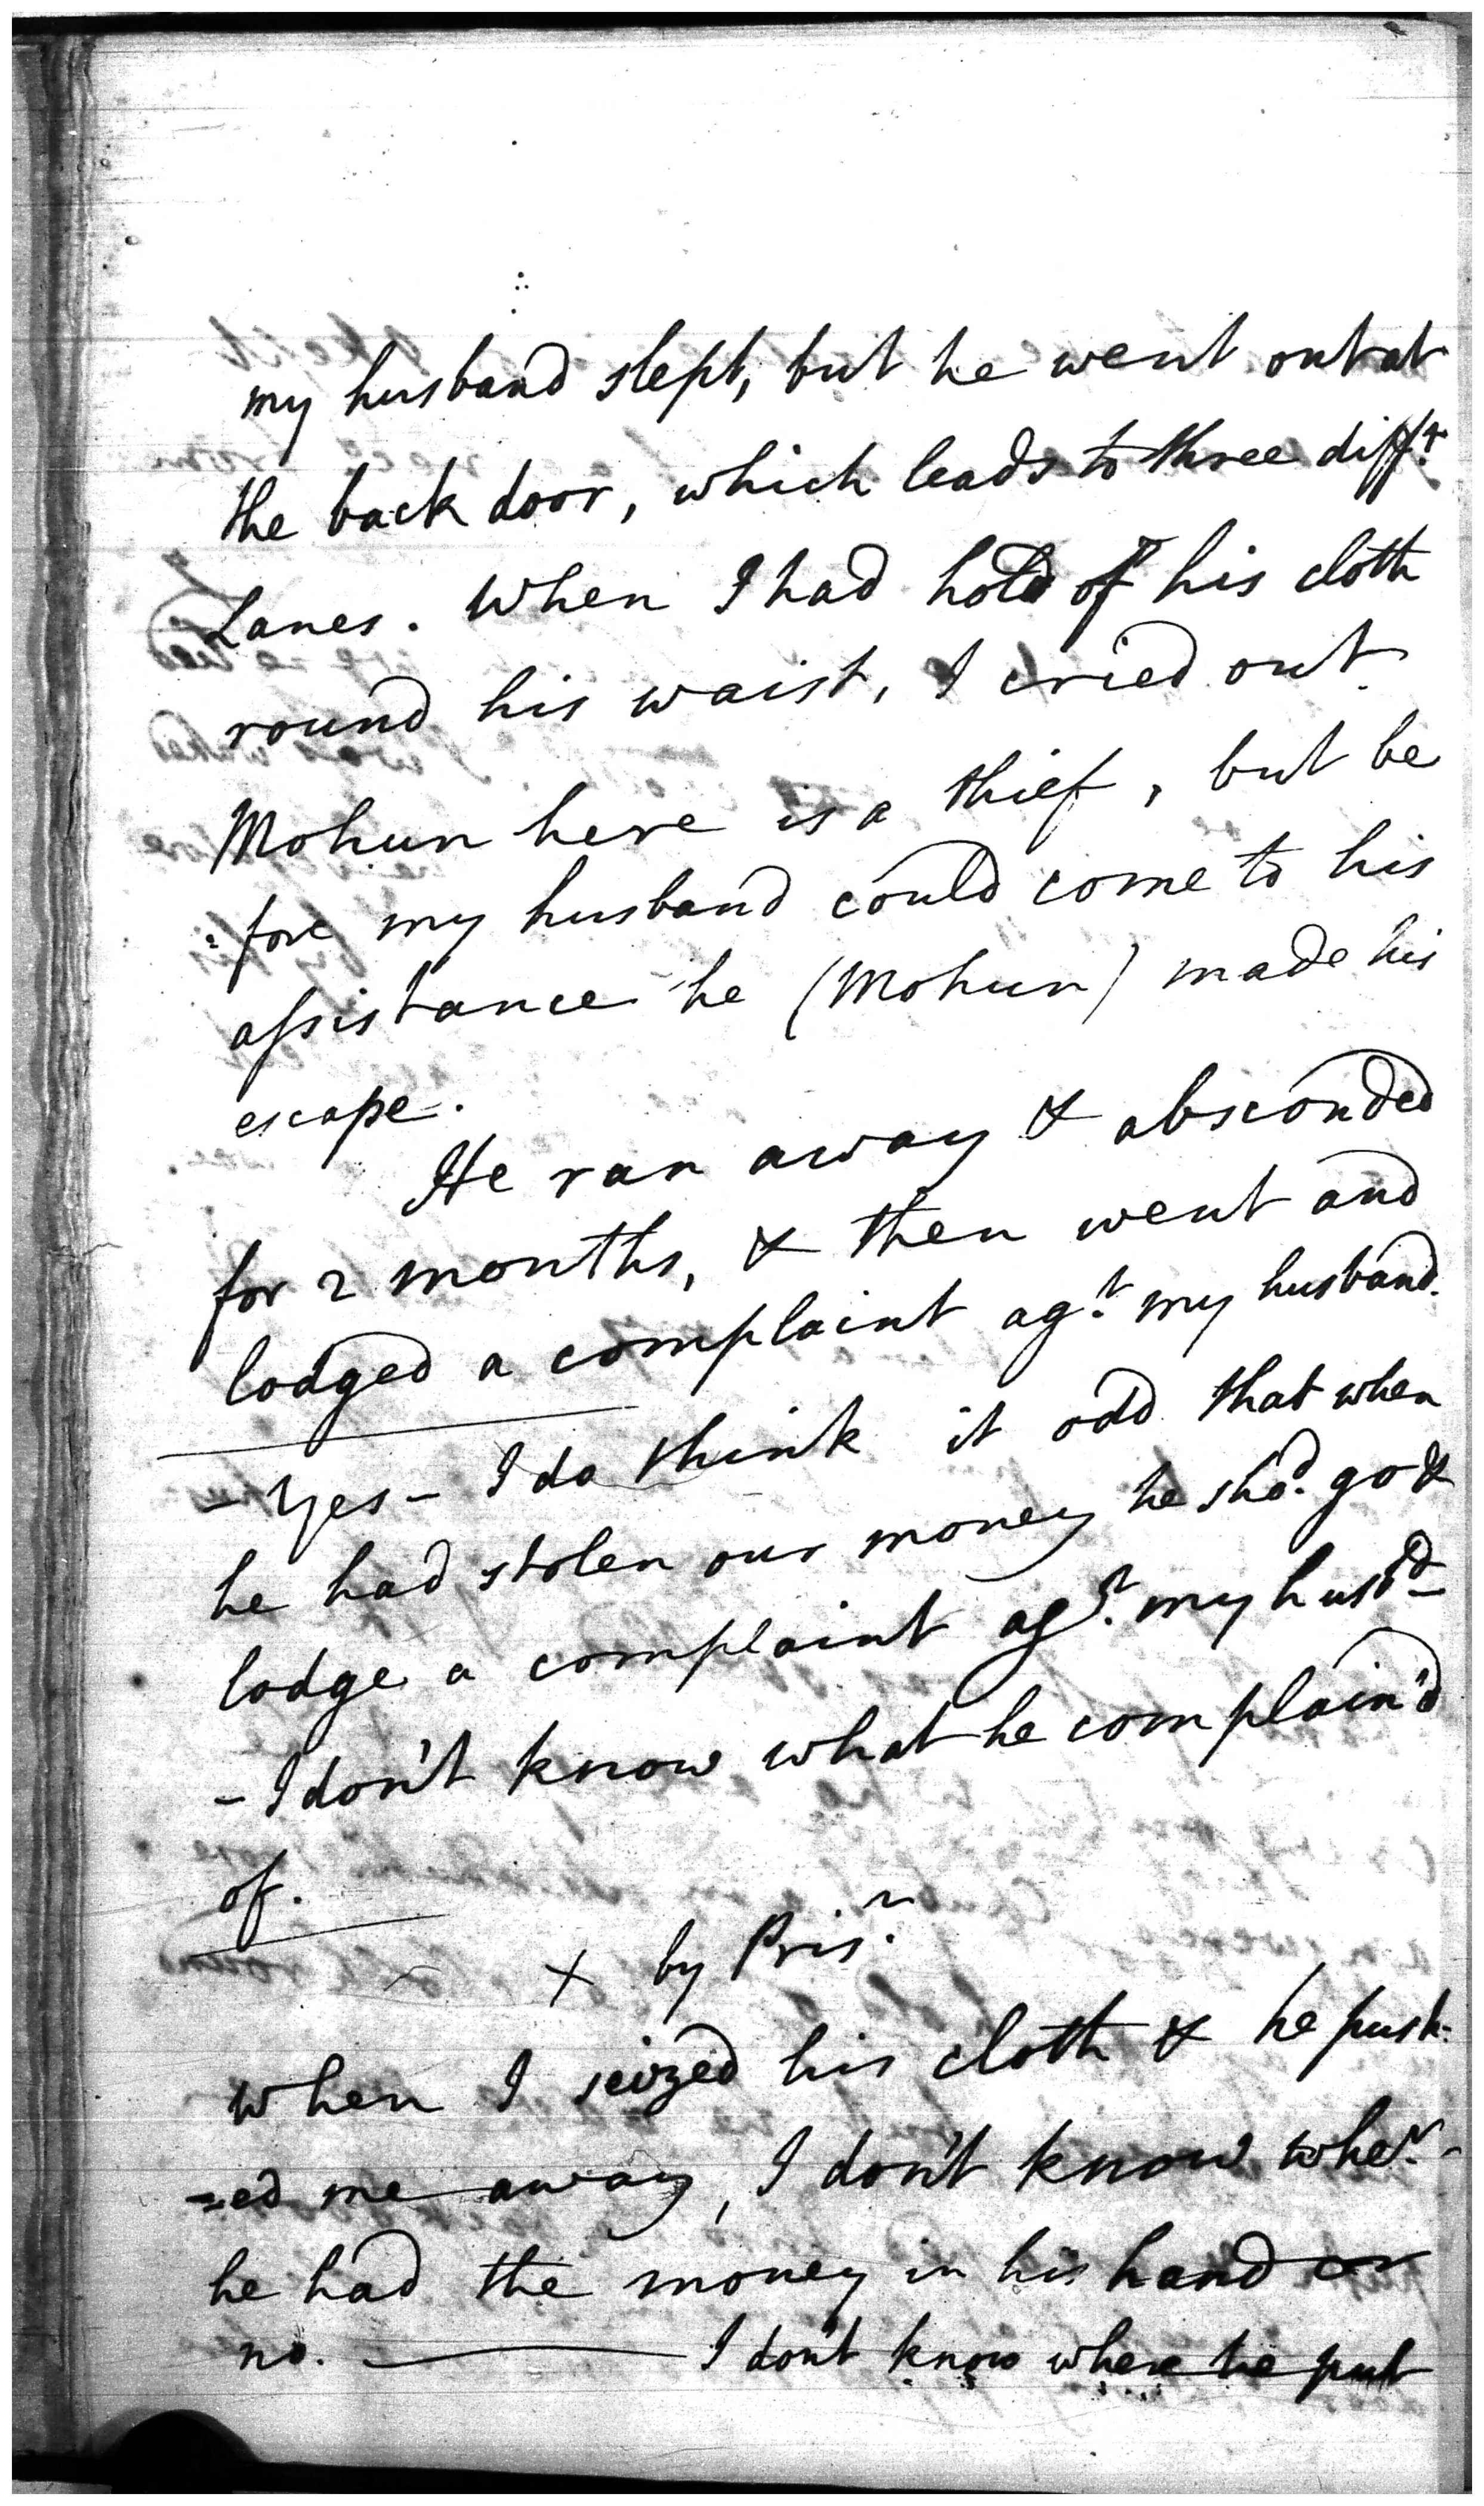 my husband slept, but he went out at
the back door, which leads to three difft.
Lanes. When I had hold of his cloth
round his waist, I cried out
Mohun here is a thief, but be
=fore my husband could come to his
assistance he (Mohun) made his
escape.
He ran away & absconded
for 2 months, & then went and
lodged a complaint agt. my husband.
- Yes - I do think it odd that when
he had stolen our money he shod. go &
lodge a complaint agt. my husbd-
- I don't know what he complain'd
of.
X by Prisr.
When I seized his cloth & he push=
=ed me away, I don't know wher.
he had the money in his hand or
no. — I don't know where he put